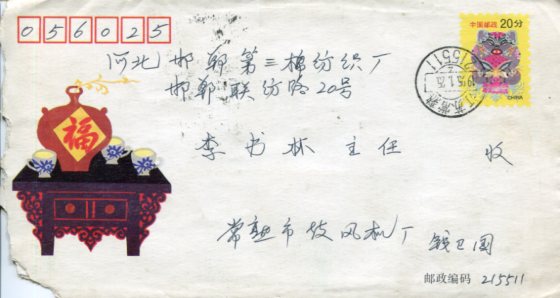 056025
中国邮政 20分
CHINA
215511
1995.1.25
河北邯郸第三棉纺织厂
邯郸联纺路20号
福
李书林 主任 收
常熟市鼓风机厂 钱卫国
邮政编码 215511